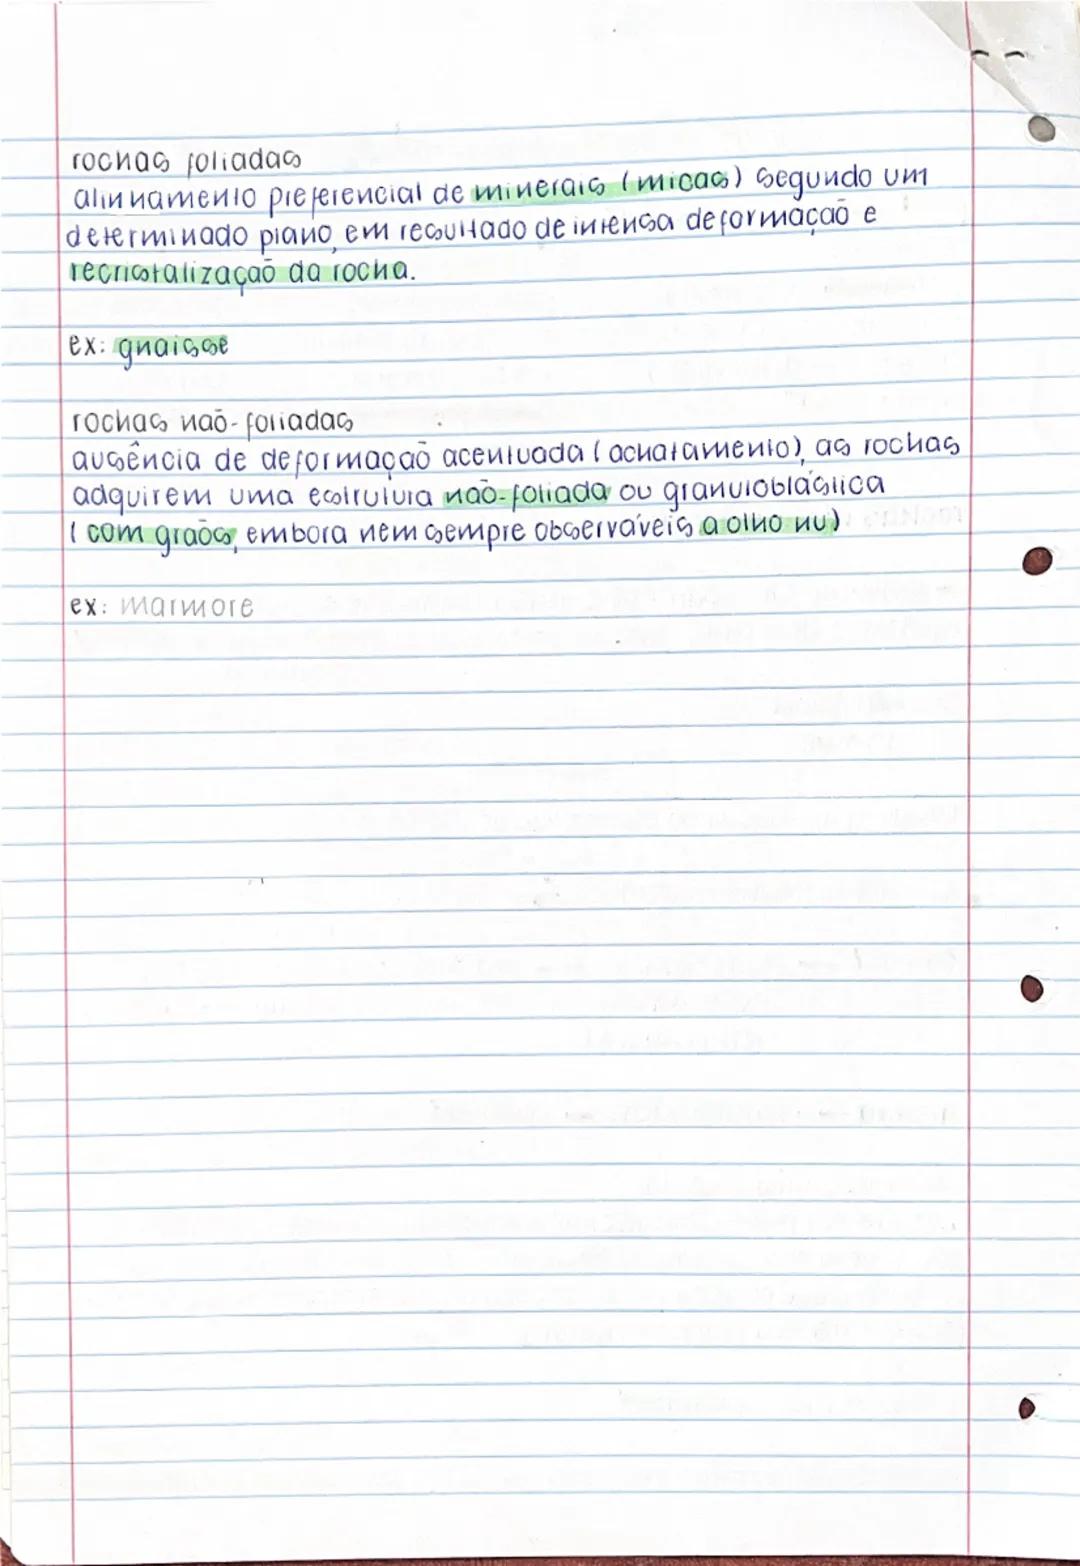 rochas foliadas
alinhamento preferencial de minerais (micas) segundo um
determinado plano, em resultado de intensa deformação e
recristalização da rocha.
ex: gnaisse
rochas não-foliadas
ausência de deformação acentuada (achatamento), as rochas
adquirem uma estrutura não-foliada ou granuloblástica
(com grãos, embora nem sempre observáveis a olho nu)
ex: marmore